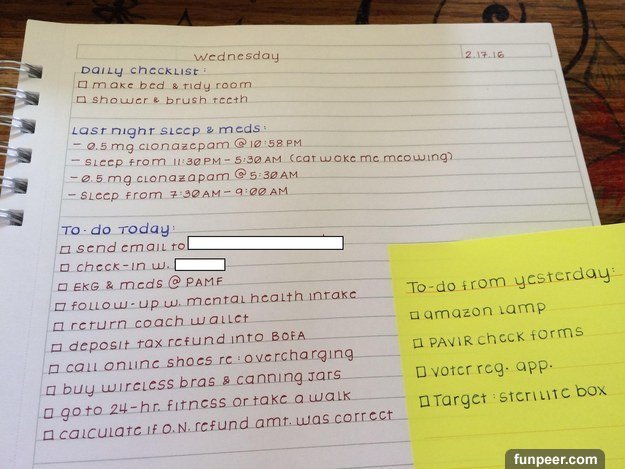 Wednesday 2.17.16
Daily checklist:
□ make bed & tidy room
□ shower & brush teeth
Last night sleep & meds:
- 0.5 mg clonazepam @ 10:58 PM
- sleep from 11:30 PM - 5:30 AM (cat woke me meowing)
- 0.5 mg clonazapam @ 5:30 AM
- sleep from 7:30 AM - 9:00 AM
To-do today:
□ send email to
□ check-in w.
□ EKG & meds @ PAMF
□ follow-up w. mental health intake
□ return coach wallet
□ deposit tax refund into BofA
□ call online shoes re: overcharging
□ buy wireless bras & canning jars
□ go to 24-hr. fitness or take a walk
□ calculate if O.N. refund amt. was correct
To-do from yesterday:
□ amazon lamp
□ PAVIR check forms
□ voter reg. app.
□ Target: sterilite box
funpeer.com